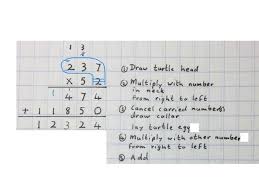 1 3
2 3 7
x 5 2
1 4 7 4
+ 1 1 8 5 0
1 2 3 2 4
① Draw turtle head
② Multiply with number
in neck
from right to left
③ Cancel carried number(s)
draw collar
lay turtle egg
④ Multiply with other number
from right to left
⑤ Add